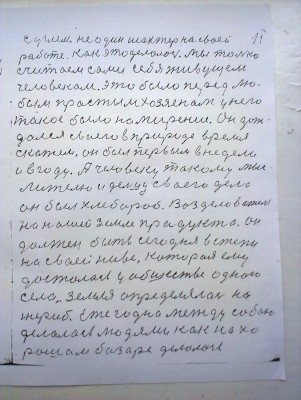 11
с углем. не один шахтер на своей
работе. Как это делолос. мы толко
считаем сами себя живущем
человекам. это было перед лю-
бым прастым хозяенам у него
такое было намирение. Он дож-
дался своего в природе время
скажем. он был первым в недели
и вгоду. А человеку такому мыс-
лителю и делцу своего дела
он был хлебароб. Возделователь
на нашей земле прадукта. он
должен быть сегодня встепи
на своей ниве, которая ему
досталась у обществе одного
села, земля определялас на
жериб. Ежегодна между собою
делолась людями как на хо
рошам базаре делолось